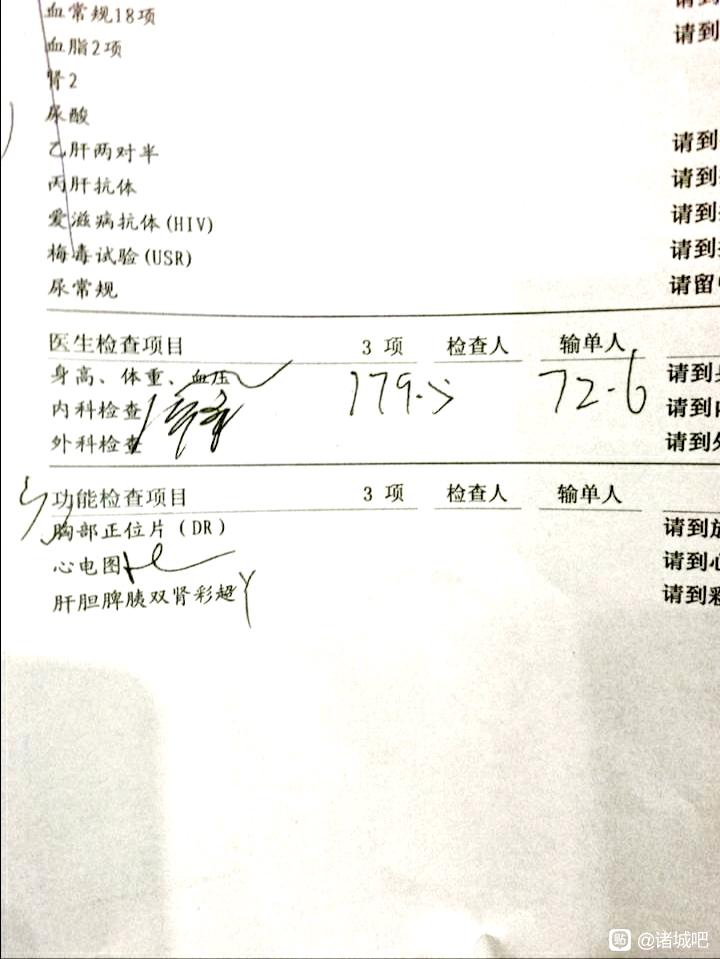 血常规18项 请到
血脂2项 请到
肾2
尿酸
乙肝两对半 请到
丙肝抗体 请到
爱滋病抗体(HIV) 请到
梅毒试验(USR) 请到
尿常规 请留
医生检查项目 3 项 检查人 输单人
身高、体重、血压 179.5 72.6 请到
内科检查 请到
外科检查 请到
功能检查项目 3 项 检查人 输单人
胸部正位片(DR) 请到
心电图 请到
肝胆脾胰双肾彩超 请到
贴 @诸城吧